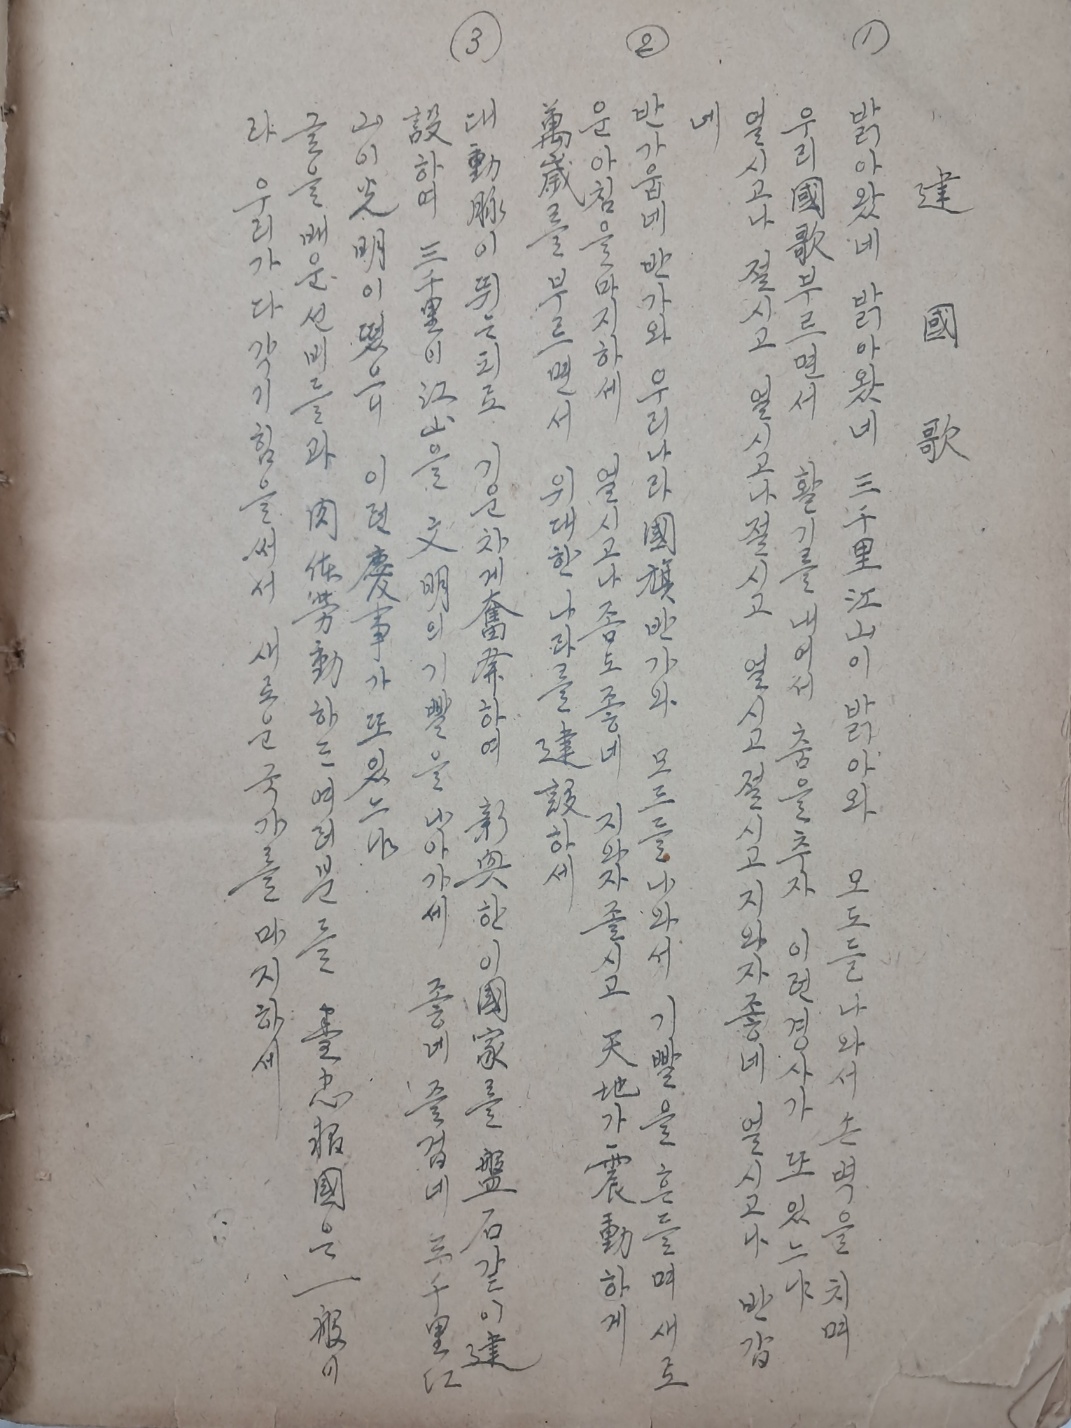 建國歌
①
밝아왔네 밝아왔네 三千里江山이 밝아와 모도들나와서 손벽을치며
우리國歌부르면서 활기를내여서 춤을추자 이런경사가 또있느냐
얼시고나 절시고 얼시고나절시고 얼시고절시고지와자좋네 얼시고나 반갑
네
②
반가웁네반가와 우리나라國旗반가와 모드들나와서 기빨을흔들며새로
운아침을마지하세 얼시고나좀도좋네 지와자졸시고 天地가震動하게
萬歲를부르면서 위대한나라를建設하세
③
대動脉이뛰는피로 기운차게奮鬪하여 新興한이國家를盤石같이建
設하여 三千里이江山을 文明의기빨을나아가세 좋네즐겁네三千里江
山이光明이떴으니 이런慶事가또있느냐
글을배운선비들과 肉体勞動하는여러분들 盡忠報國은一般이
라 우리가다각기힘을써서 새로운국가를마지하세